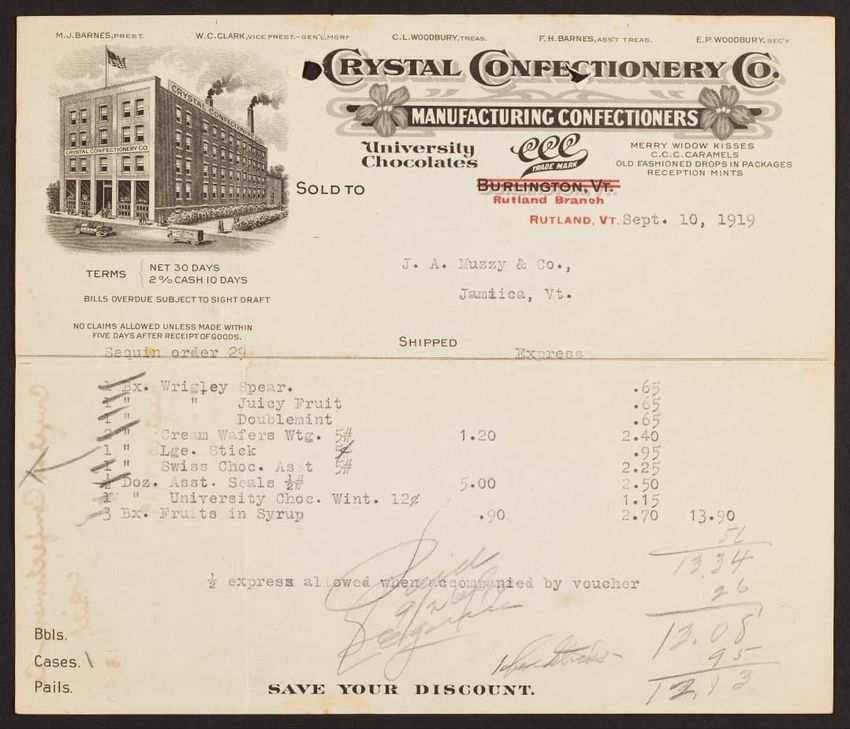 M.J. BARNES, PREST. W.C. CLARK, VICE PREST.-GEN'L.MGR. C.L. WOODBURY, TREAS. F.H. BARNES, ASS'T TREAS. E.P. WOODBURY, SEC'Y
CRYSTAL CONFECTIONERY CO.
MANUFACTURING CONFECTIONERS
CRYSTAL CONFECTIONERY CO.
University Chocolates
CCC
TRADE MARK
MERRY WIDOW KISSES
C.C.C. CARAMELS
OLD FASHIONED DROPS IN PACKAGES
RECEPTION MINTS
SOLD TO
BURLINGTON, VT.
Rutland Branch
RUTLAND, VT. Sept. 10, 1919
J. A. Muzzy & Co.,
Jamiica, Vt.
TERMS NET 30 DAYS
2% CASH 10 DAYS
BILLS OVERDUE SUBJECT TO SIGHT DRAFT
NO CLAIMS ALLOWED UNLESS MADE WITHIN
FIVE DAYS AFTER RECEIPT OF GOODS.
SHIPPED
Sequin order 29 Express
1 Bx. Wrigley Spear. .65
1 " " Juicy Fruit .65
1 " Doublemint .65
2 " Cream Wafers Wtg. 5# 1.20 2.40
1 " Lge. Stick 5¢ .95
1 " Swiss Choc. Asst 5# 2.25
Doz. Asst. Seals ½# 5.00 2.50
1 " University Choc. Wint. 12¢ 1.15
3 Bx. Fruits in Syrup .90 2.70 13.90
56
13.34
26
13.08
95
12.13
½ express allowed when accompanied by voucher
Paid
Bbls.
Cases. \
Pails.
SAVE YOUR DISCOUNT.